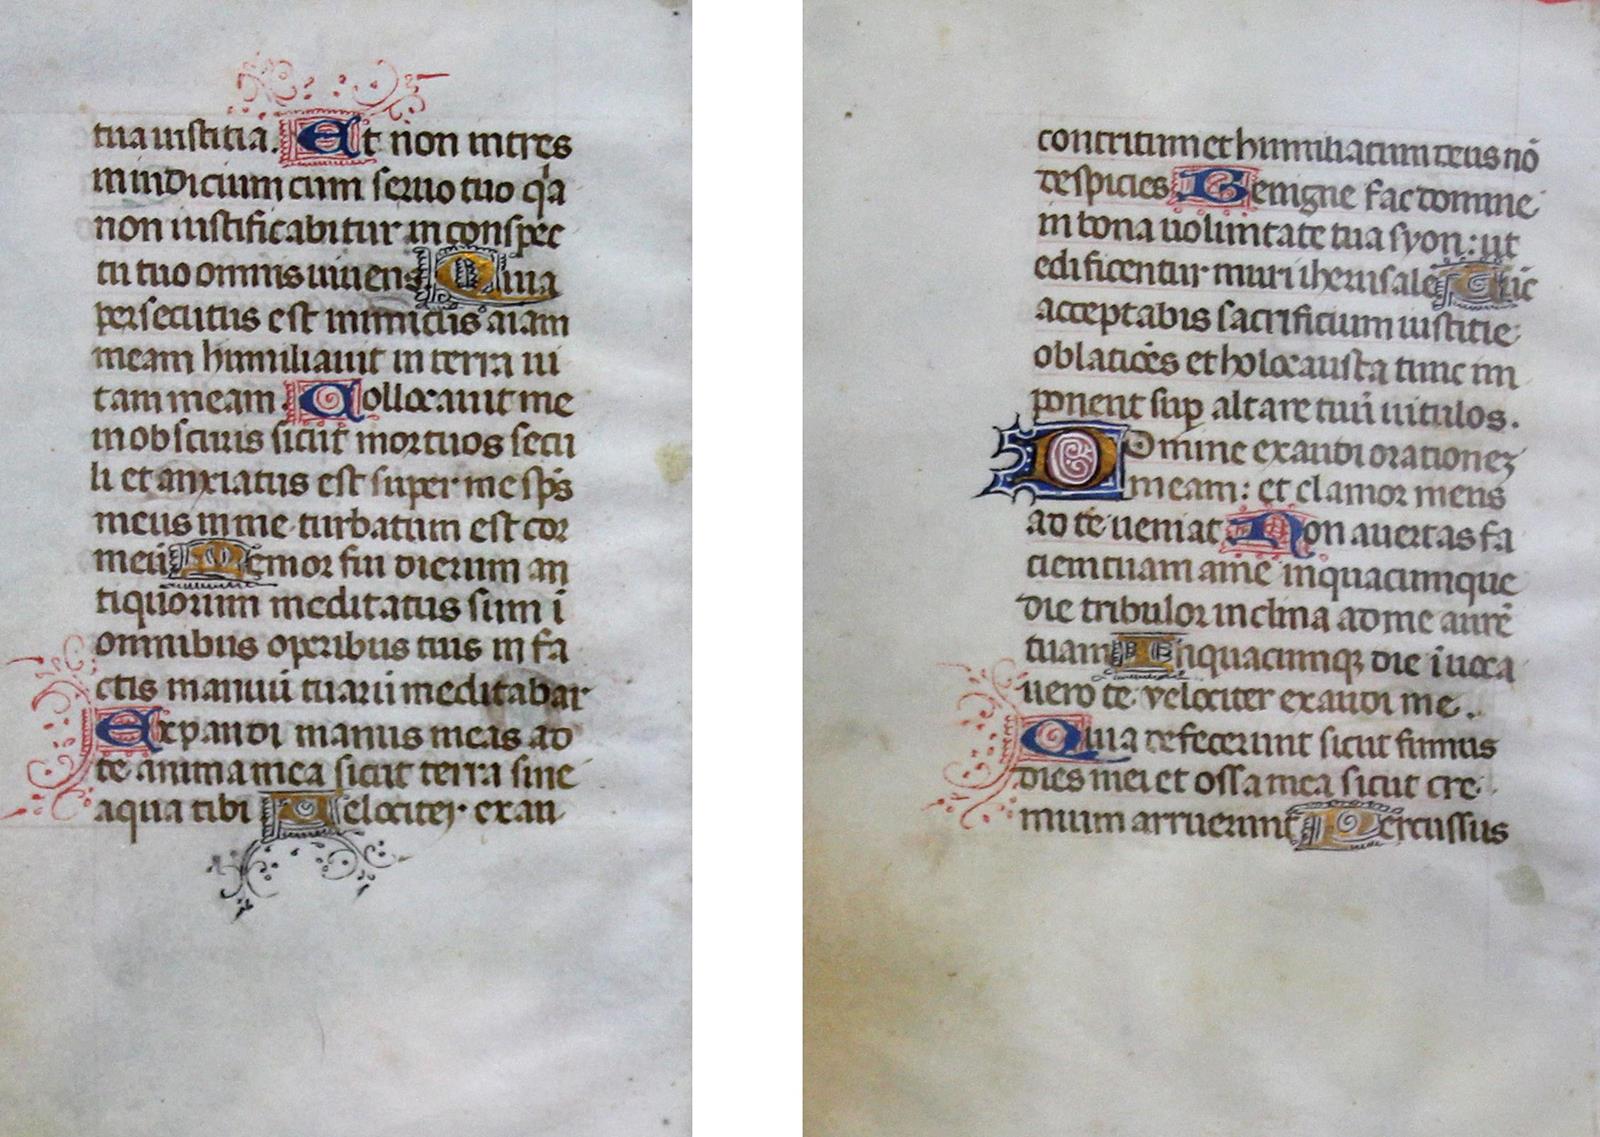 tua iusticia. Et non intres
in iudicium cum seruo tuo q̃a
non iustificabitur in conspec
tu tuo omnis uiuens Quia
persecutus est inimicus aiam
meam humiliauit in terra ui
tam meam. Collocauit me
in obscuris sicut mortuos secu
li et anxiatus est super me sp̃s
meus in me turbatum est cor
meũ Memor fui dierum an
tiquorum meditatus sum ĩ
omnibus operibus tuis in fa
ctis manuũ tuarũ meditabar
Expandi manus meas ad
te anima mea sicut terra sine
aqua tibi Uelociter exau
contritum et humiliatum deus nõ
despicies Benigne fac domine
in bona uoluntate tua syon: ut
edificentur muri iherusale Tũc
acceptabis sacrificium iusticie
oblacões et holocausta tunc im
ponent sup altare tuũ uitulos.
Domine exaudi orationez
meam: et clamor meus
ad te ueniat Non auertas fa
ciem tuam a me in quacumque
die tribulor inclina ad me aurẽ
tuam In quacumq; die ĩuoca
uero te velociter exaudi me.
Quia defecerunt sicut fumus
dies mei et ossa mea sicut cre
mium arruerunt Percussus